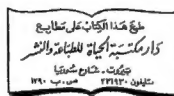 طبع هذا الكتاب على مطابع
دار مكتبة الحياة للطباعة والنشر
بيروت - شارع سوريا
تليفون ٢٣٦٩٣٠ ص.ب ١٣٩٠